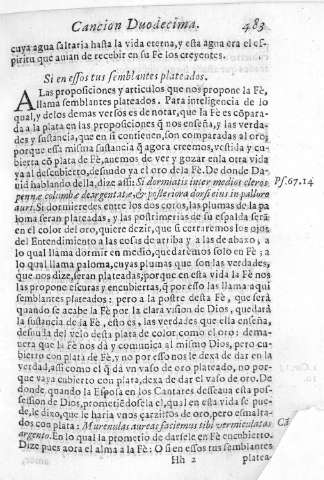 Cancion Duodecima. 483
cuya agua saltaria hasta la vida eterna, y esta agua era el es-
piritu que auian de recebir en su Fè los creyentes.
Si en essos tus semblantes plateados.
A Las proposiciones y articulos que nos propone la Fè,
llama semblantes plateados. Para inteligencia de lo
qual, y de los demas versos es de notar, que la Fè es cõpara-
da a la plata en las proposiciones q̃ nos enseña, y las verda-
des y sustancia, que en si contienen, son comparadas al oro;
porque essa misma sustancia q̃ agora creemos, vestida y cu-
bierta cõ plata de Fè, auemos de ver y gozar en la otra vida
ya al descubierto, desnudo ya el oro de la Fè. De donde Da-
uid hablando della, dize assi: Si dormiatis inter medios cleros, Ps. 67. 14
pennæ columbæ deargentatæ, & posteriora dorsi eius in pallore
auri. Si dormieredes entre los dos coros, las plumas de la pa
loma seran plateadas, y las postrimerias de su espalda serà
en el color del oro, quiere dezir, que si cerraremos los ojos
del Entendimiento a las cosas de arriba y a las de abaxo, a
lo qual llama dormir en medio, quedarèmos solo en Fè; a
lo qual llama paloma, cuyas plumas que son las verdades,
que nos dize, seràn plateadas, porque en esta vida la Fè nos
las propone escuras y encubiertas, q̃ por esso las llama aqui
semblantes plateados: pero a la postre desta Fè, que serà
quando se acabe la Fè por la clara vision de Dios, quedarà
la sustancia de la Fè, esto es, las verdades que ella enseña,
desnuda del velo desta plata de color como el oro: dema-
nera que la Fè nos dà y comunica al mismo Dios, pero cu-
bierto con plata de Fè, y no por esso nos le dexa de dar en la
verdad, assi como el q̃ dà vn vaso de oro plateado, no por-
que vaya cubierto con plata, dexa de dar el vaso de oro. De
donde quando la Esposa en los Cantares desseaua esta pos-
session de Dios, prometiẽdosela el, qual en esta vida se pue-
de, le dixo, que le haria vnos çarzillos de oro, pero esmalta-
dos con plata: Murenulas aureas faciemus tibi vermiculatas
argento. En lo qual la prometio de darsele en Fè encubierto.
Dize pues aora el alma a la Fè: O si en essos tus semblantes
Hh 2 platea-